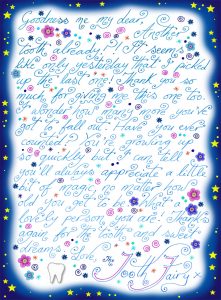 Goodness me my dear,
Another
tooth already! It seems
like only yesterday that I picked
up the last one! Thank you so
much for giving me this one too.
I wonder how many more you've
got to fall out? Have you ever
counted? You're growing up
so quickly but I can tell
you'll always appreciate a little
bit of magic, no matter how
old you get to be. What a
lovely person you are! Thanks
again for the tooth and sweet
dreams. Love,
The
Tooth Fairy x